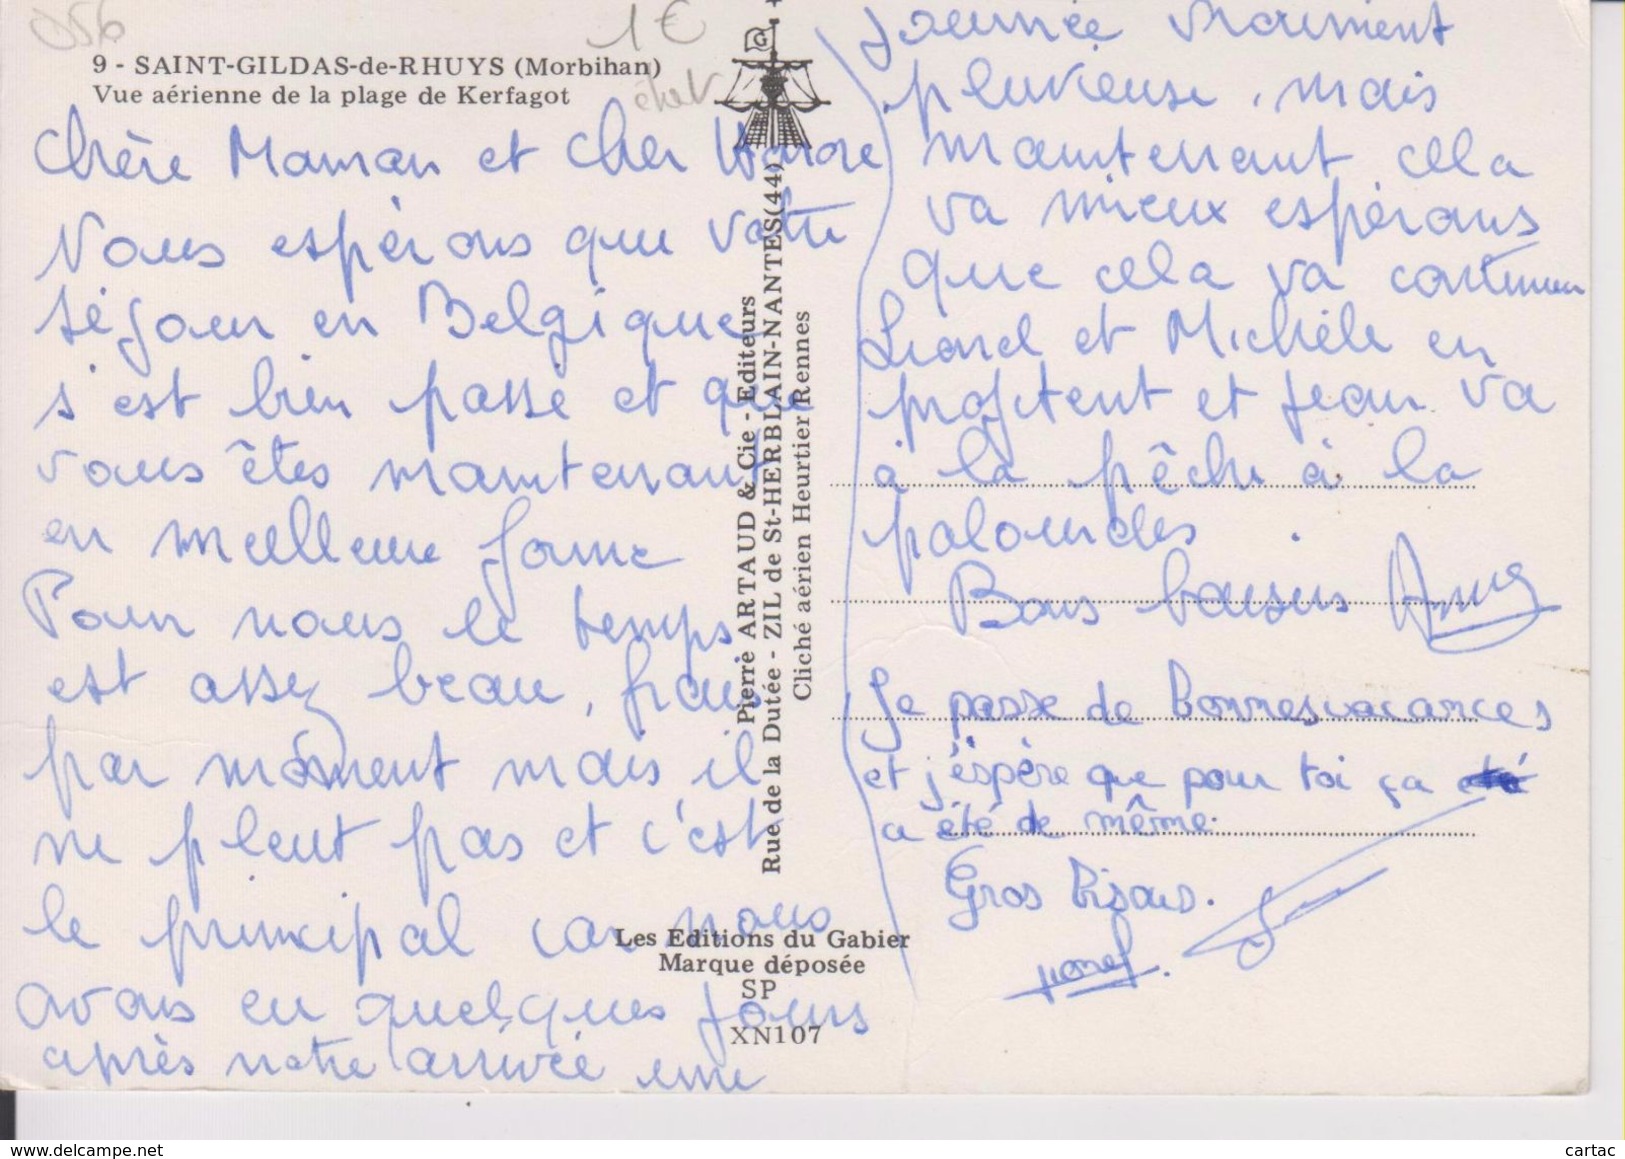 056
1€
9 - SAINT-GILDAS-de-RHUYS (Morbihan)
Vue aérienne de la plage de Kerfagot
G
Chère Maman et cher
Nous espérons que votre
séjour en Belgique
s'est bien passé et que
vous êtes maintenant
en meilleure forme
Pour nous le temps
est assez beau, frais
par moment mais il
ne pleut pas et c'est
le principal car nous
avons eu quelques jours
après notre arrivée une
journée vraiment
pluvieuse, mais
maintenant cela
va mieux espérons
que cela va continuer
Lionel et Michèle en
profitent et Jean va
à la pêche à la
palourdes.
Bons baisers
Je passe de bonnes vacances
et j'espère que pour toi ça
a été de même.
Gros bisous.
Lionel
Pierre ARTAUD & Cie - Editeurs
Rue de la Dutée - ZIL de St-HERBLAIN-NANTES(44)
Cliché aérien Heurtier Rennes
Les Editions du Gabier
Marque déposée
SP
XN107
www.delcampe.net
cartac